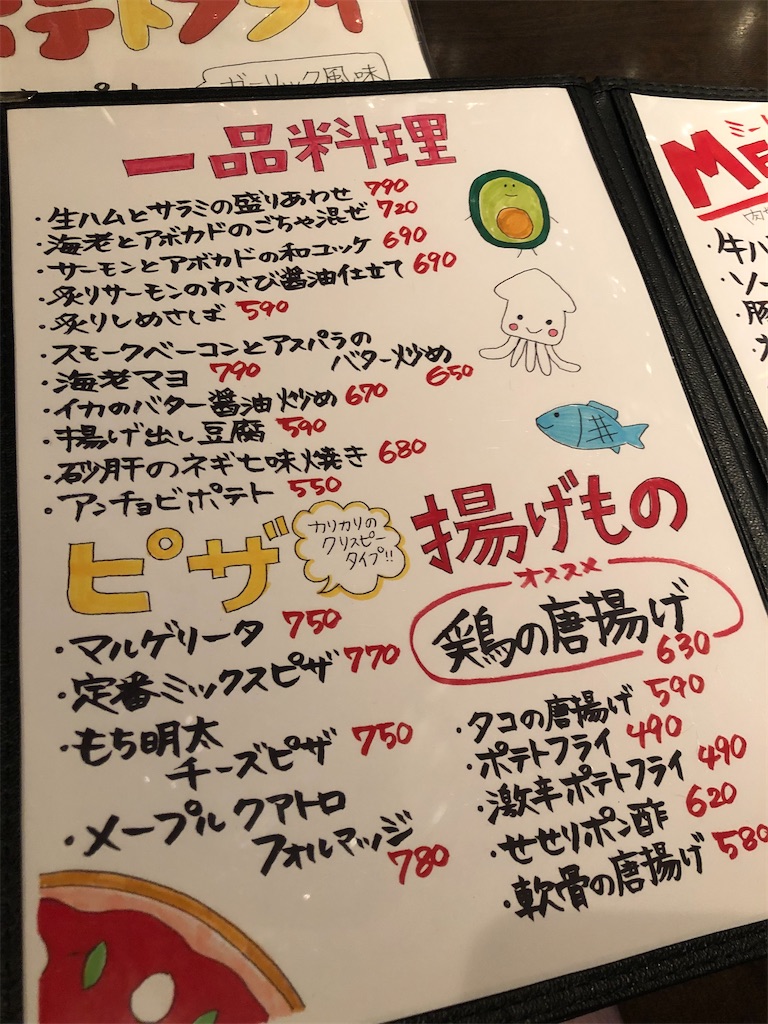 ポテトフライ
ガーリック風味
一品料理
・生ハムとサラミの盛りあわせ 790
・海老とアボカドのごちゃ混ぜ 720
・サーモンとアボカドの和ユッケ 690
・炙りサーモンのわさび醤油仕立て 690
・炙りしめさば 590
・スモークベーコンとアスパラの
バター炒め 650
・海老マヨ 790
・イカのバター醤油炒め 670
・揚げ出し豆腐 590
・砂肝のネギ七味焼き 680
・アンチョビポテト 550
ピザ
カリカリの
クリスピー
タイプ!!
・マルゲリータ 750
・定番ミックスピザ 770
・もち明太
チーズピザ 750
・メープルクアトロ
フォルマッジ 780
揚げもの
オススメ
鶏の唐揚げ
630
・タコの唐揚げ 590
・ポテトフライ 490
・激辛ポテトフライ 490
・せせりポン酢 620
・軟骨の唐揚げ 580
ミー
M